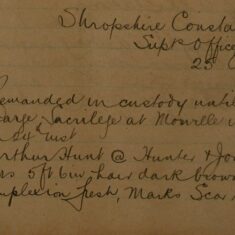 Shropshire Consta
Supt Office
25 O
emanded in custody until
arge, Sacrilege at Morville
inst
rthur Hunt @ Hunter & Jon
rs 5ft 6in hair dark brown
mplexion fresh, Marks Scar